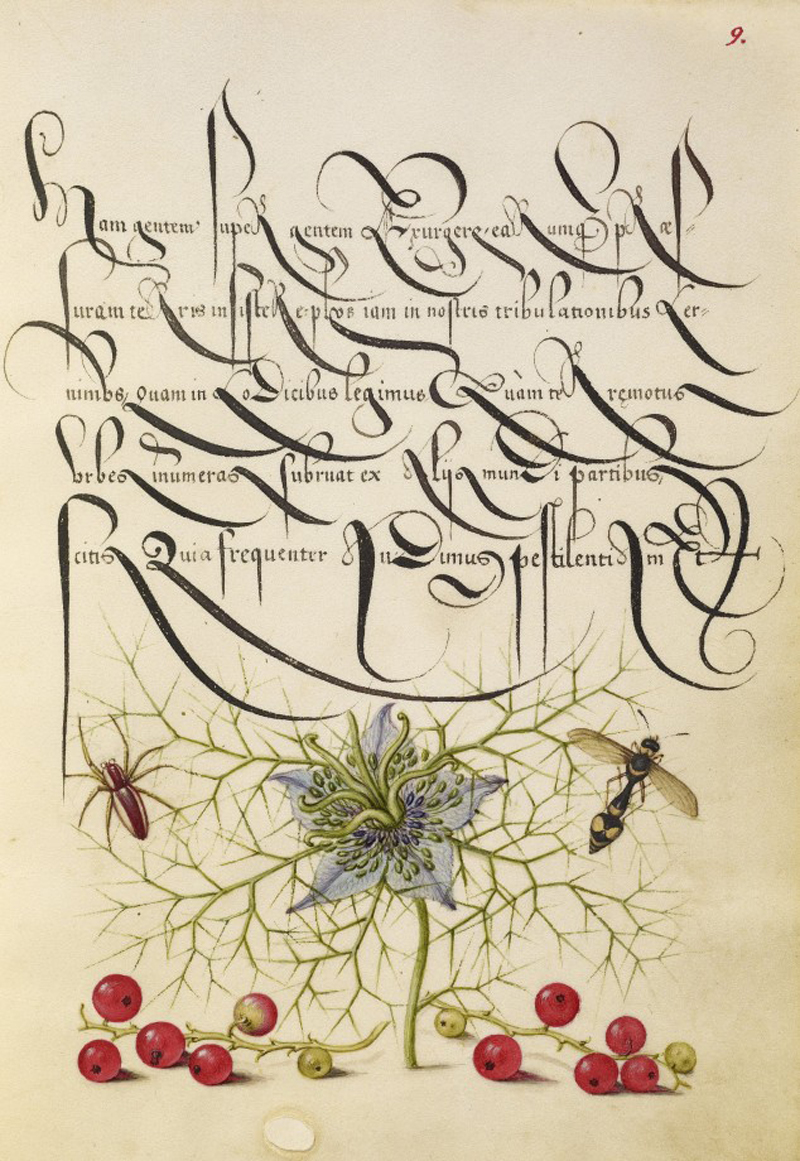 9.
Nam gentem super gentem Exurgere, earumq̃ præs=
suram terris insistere, plus iam in nostris tribulationibus Cer=
nimus, Quam in Codicibus legimus. Quàm terremotus
Vrbes innumeras subruat ex Alijs mundi partibus,
scitis Quia frequenter Audimus pestilentiam Et